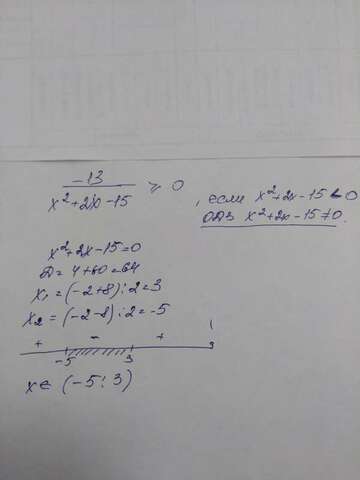 -13
x²+2x-15 ≥ 0 , если x²+2x-15<0
ОДЗ x²+2x-15≠0.
x²+2x-15=0
D=4+60=64
x₁=(-2+8):2=3
x₂=(-2-8):2=-5
+ - +
-5 3
x∈(-5;3)